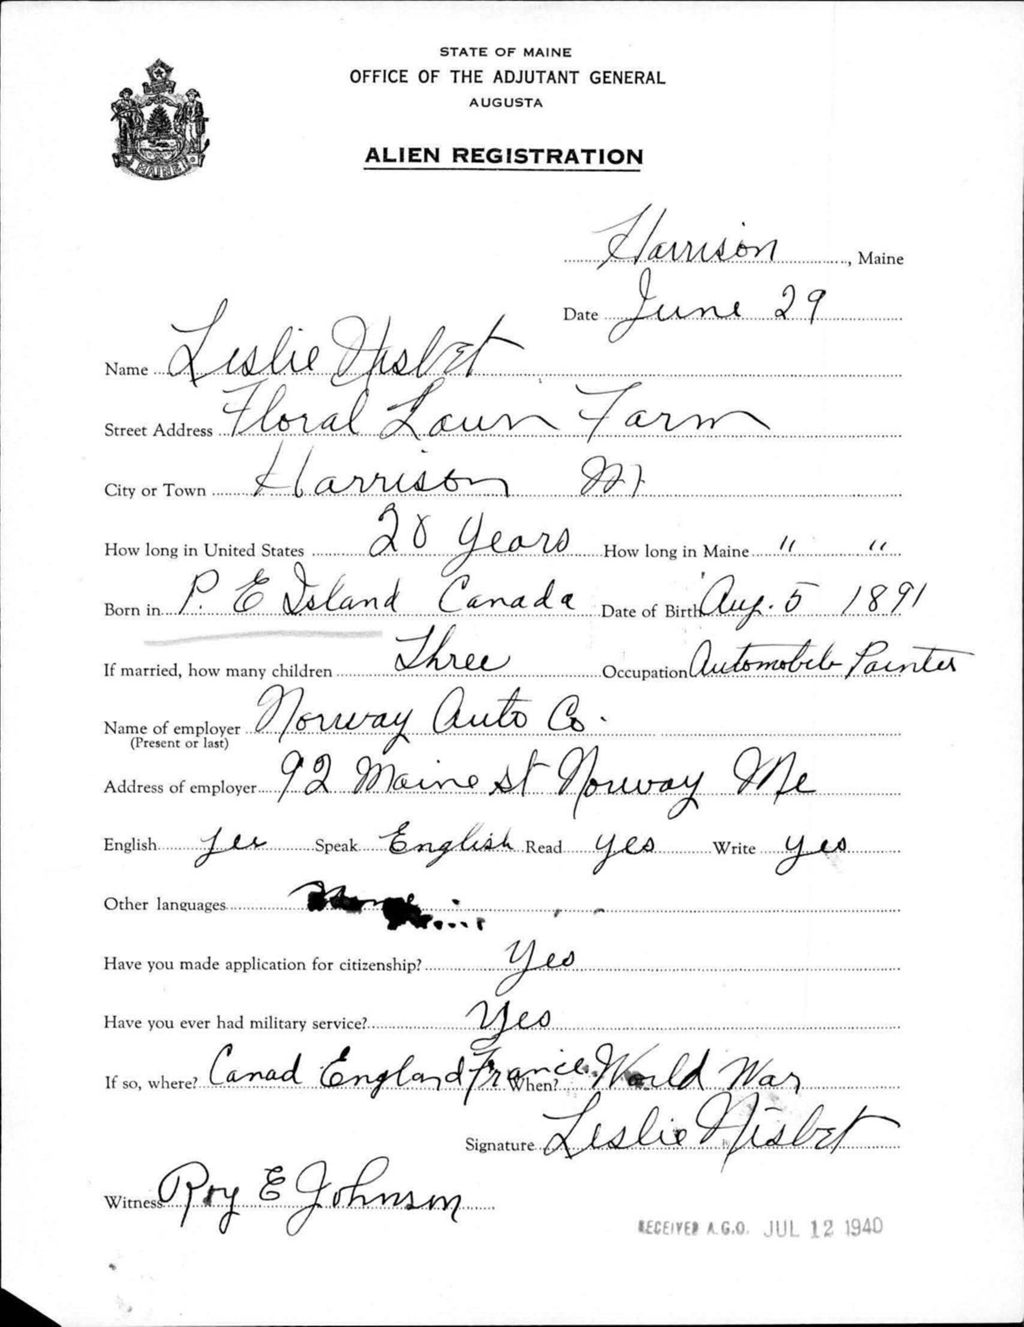 STATE OF MAINE
OFFICE OF THE ADJUTANT GENERAL
AUGUSTA
MAINE
ALIEN REGISTRATION
Harrison, Maine
Date June 29
Name Leslie Nisbet
Street Address Floral Lawn Farm
City or Town Harrison
How long in United States 20 Years How long in Maine " "
Born in P. E Island Canada Date of Birth Aug. 5 1891
If married, how many children Three Occupation Automobile Painter
Name of employer Norway Auto Co.
(Present or last)
Address of employer 92 Maine St Norway Me
English yes Speak English Read yes Write yes
Other languages None
Have you made application for citizenship? Yes
Have you ever had military service? Yes
If so, where? Canad England France When? World War
Signature Leslie Nisbet
Witness Roy E Johnson
RECEIVED A.G.O. JUL 12 1940